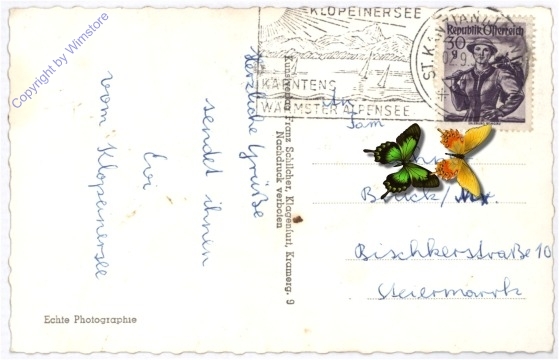 Copyright by Wimstore
KLOPEINERSEE
KÄRNTENS
WÄRMSTER ALPENSEE
ST. KAN
Republik Österreich
30
g
Herzliche Grüße
sendet ihnen
Evi
vom Klopeinersee
Kunstverlag Franz Schilcher, Klagenfurt, Kramerg. 9
Nachdruck verboten
An
Fam
Bruck/Mur.
Bischkerstraße 10
Steiermarrk
Echte Photographie